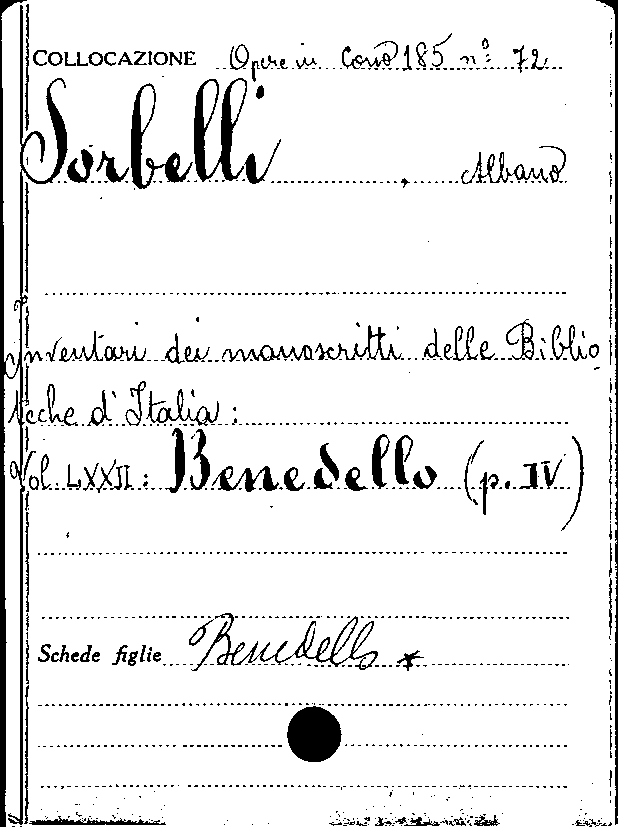 COLLOCAZIONE Opere in Corso 185 n° 72
Sorbelli, Albano
Inventari dei manoscritti delle Biblio
teche d'Italia:
Vol. LXXII: Benedello (p. IV)
Schede figlie Benedello *